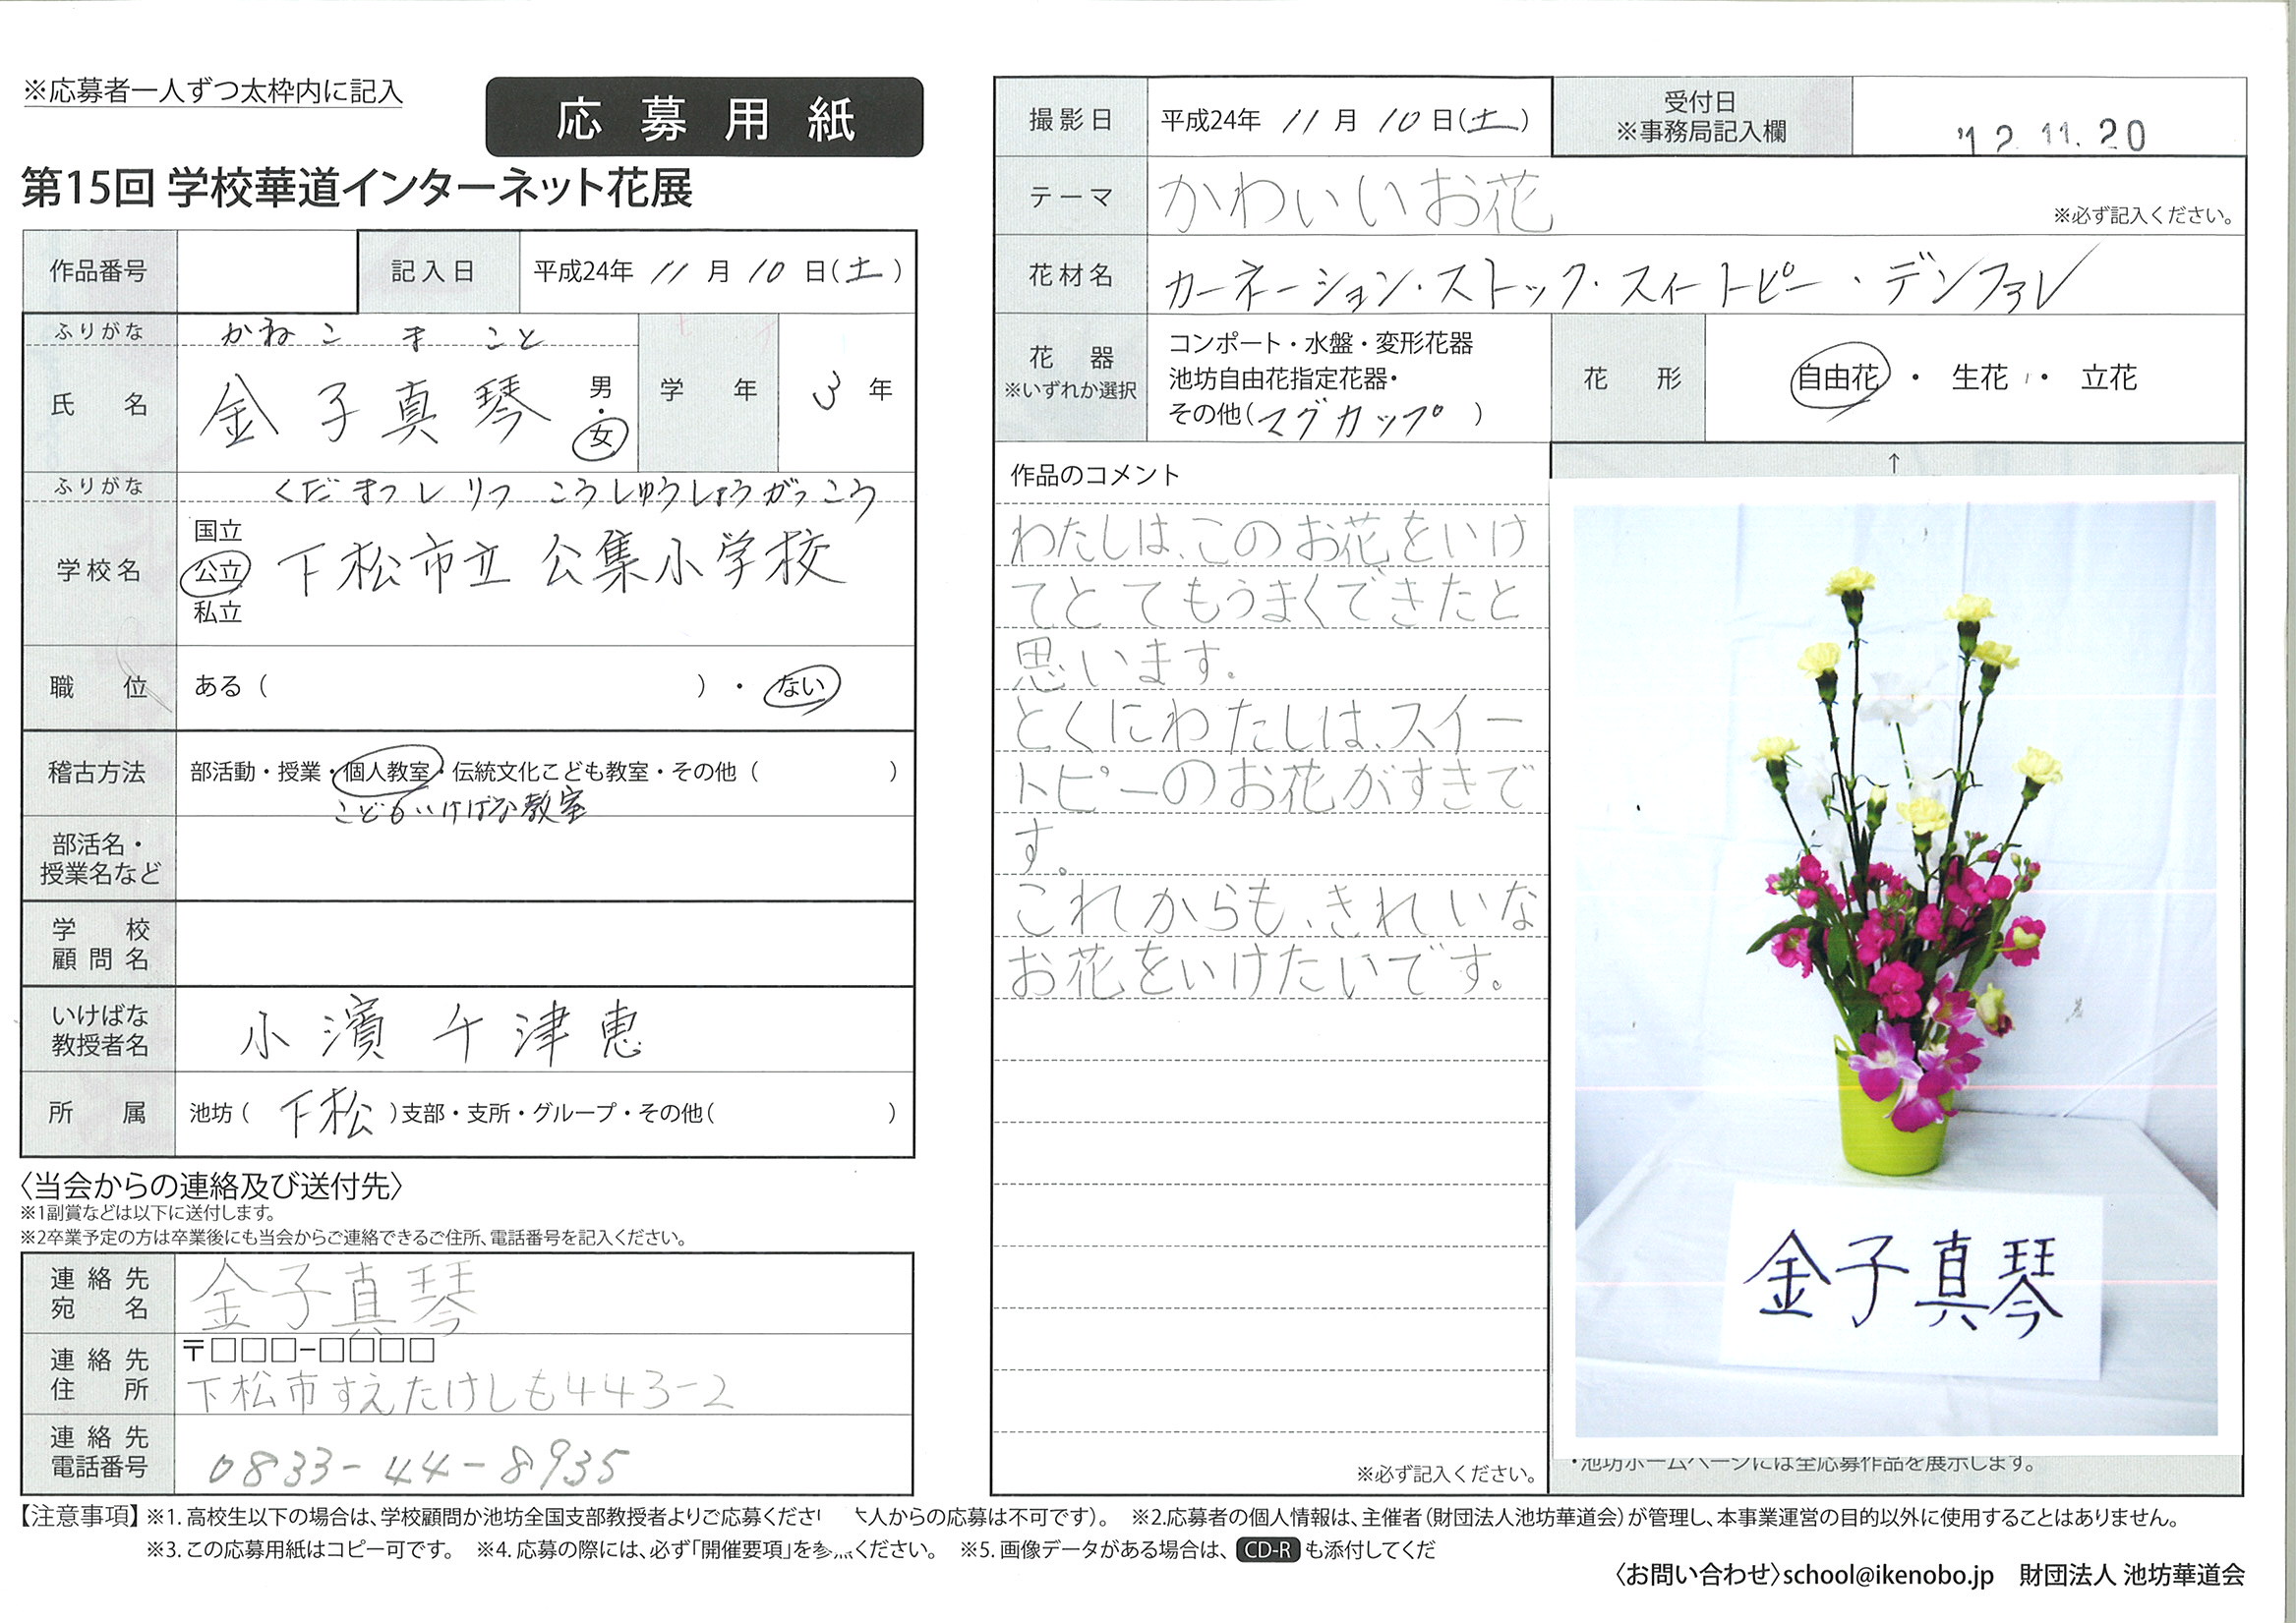 ※応募者一人ずつ太枠内に記入
応募用紙
第15回 学校華道インターネット花展
作品番号
記入日 平成24年 11月 10日(土)
ふりがな かねこ まこと
氏名 金子真琴 男・女
学年 3年
ふりがな くだまつしりつ こうしゅうしょうがっこう
学校名 国立 公立 私立 下松市立 公集小学校
職位 ある( )・ない
稽古方法 部活動・授業・個人教室・伝統文化こども教室・その他( )
こどもいけばな教室
部活名・授業名など
学校顧問名
いけばな教授者名 小濱千津恵
所属 池坊(下松)支部・支所・グループ・その他( )
〈当会からの連絡及び送付先〉
※1副賞などは以下に送付します。
※2卒業予定の方は卒業後にも当会からご連絡できるご住所、電話番号を記入ください。
連絡先宛名 金子真琴
連絡先住所 〒□□□-□□□□
下松市すえたけしも443-2
連絡先電話番号 0833-44-8935
撮影日 平成24年 11月 10日(土)
受付日 ※事務局記入欄 '12.11.20
テーマ かわいいお花 ※必ず記入ください。
花材名 カーネーション・ストック・スイートピー・デンファレ
花器 ※いずれか選択
コンポート・水盤・変形花器
池坊自由花指定花器・
その他(マグカップ)
花形 自由花・生花・立花
↑
作品のコメント
わたしは、このお花をいけ
てとてもうまくできたと
思います。
とくにわたしは、スイー
トピーのお花がすきで
す。
これからも、きれいな
お花をいけたいです。
※必ず記入ください。
金子真琴
・池坊ホームページには全応募作品を展示します。
【注意事項】※1. 高校生以下の場合は、学校顧問か池坊全国支部教授者よりご応募くださ 人からの応募は不可です)。 ※2.応募者の個人情報は、主催者(財団法人池坊華道会)が管理し、本事業運営の目的以外に使用することはありません。
※3. この応募用紙はコピー可です。 ※4. 応募の際には、必ず「開催要項」を参 ください。 ※5. 画像データがある場合は、CD-Rも添付してくだ
〈お問い合わせ〉school@ikenobo.jp 財団法人 池坊華道会